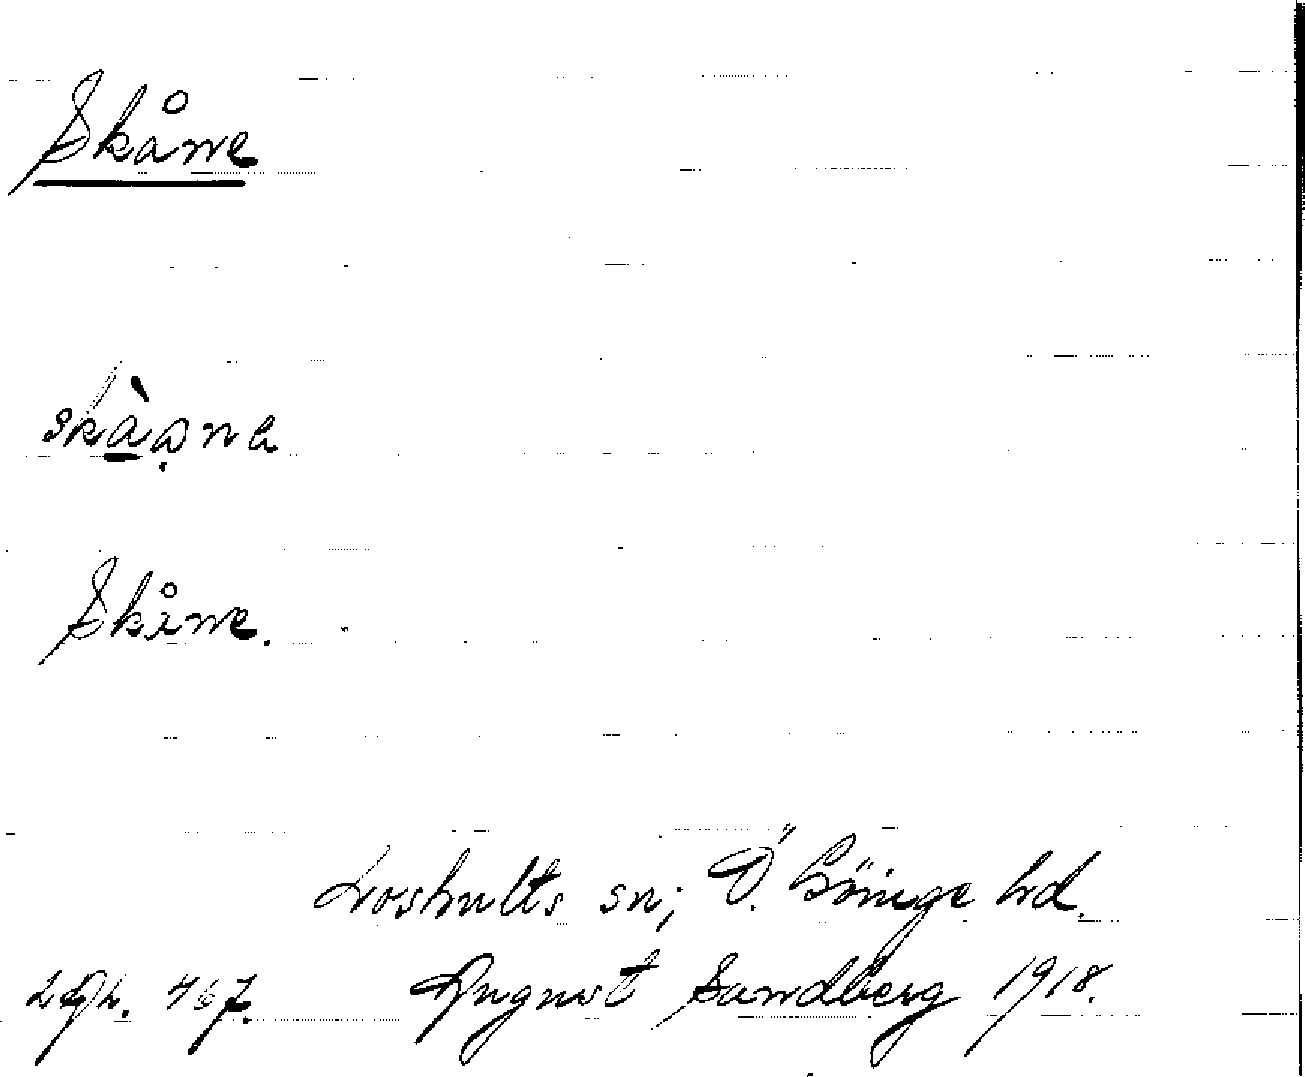 Skåne
skàạna
Skåne.
Loshults sn; Ö. Göinge hd.
August Sandberg 1918.